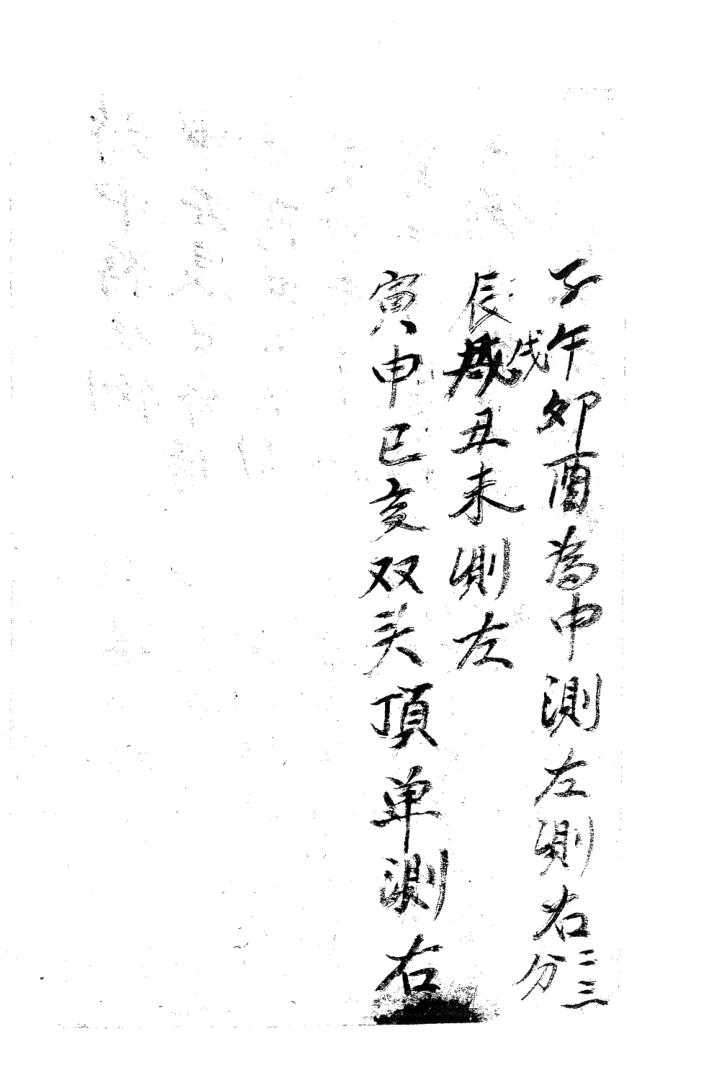 子午卯酉為中測左測右二三分
辰戌丑未測左
寅申巳亥双头頂单測右